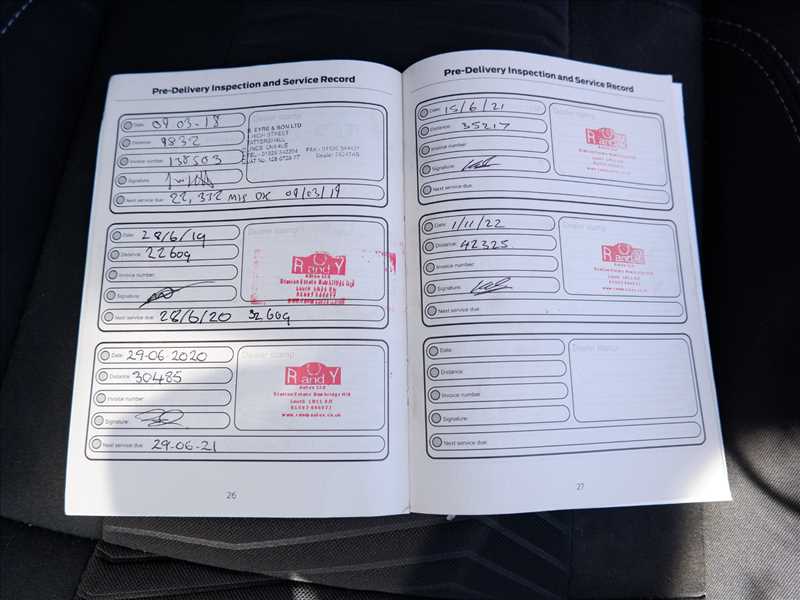 Pre-Delivery Inspection and Service Record
Date: 09-03-18
Distance: 9832
Invoice number: 138503
Signature:
Next service due: 22,332 Mls OR 09/03/19
Dealer stamp
EYRE & SON LTD
HIGH STREET
TATTERSHALL
TEL - 01526 342204
Date: 28/6/19
Distance: 22609
Invoice number:
Signature:
Next service due: 28/6/20 32609
Dealer stamp
R and Y
Autos Ltd
Date: 29-06-2020
Distance: 30485
Invoice number:
Signature:
Next service due: 29-06-21
Dealer stamp
R and Y
Autos Ltd
26
Pre-Delivery Inspection and Service Record
Date: 15/6/21
Distance: 35217
Invoice number:
Signature:
Next service due:
Dealer stamp
R and Y
Date: 1/11/22
Distance: 42325
Invoice number:
Signature:
Next service due:
Dealer stamp
R and Y
Date:
Distance:
Invoice number:
Signature:
Next service due:
Dealer stamp
27